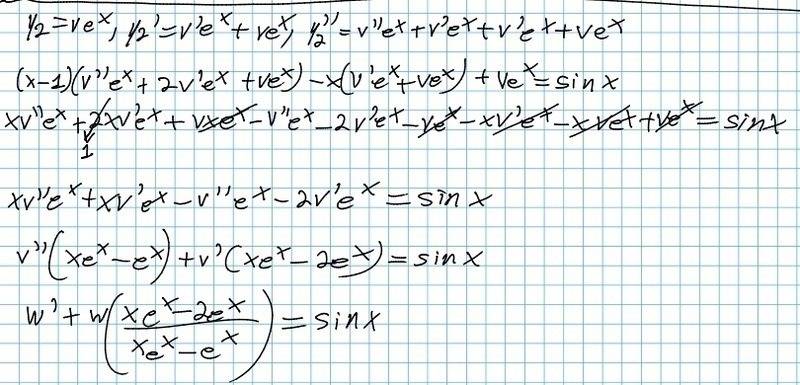 y₂=veˣ, y₂'=v'eˣ+veˣ, y₂''=v''eˣ+v'eˣ+v'eˣ+veˣ
(x-1)(v''eˣ+2v'eˣ+veˣ)-x(v'eˣ+veˣ)+veˣ=sinx
xv''eˣ+2xv'eˣ+vxeˣ-v''eˣ-2v'eˣ-veˣ-xv'eˣ-xveˣ+veˣ=sinx
1
xv''eˣ+xv'eˣ-v''eˣ-2v'eˣ=sinx
v''(xeˣ-eˣ)+v'(xeˣ-2eˣ)=sinx
w'+w((xeˣ-2eˣ)/(xeˣ-eˣ))=sinx